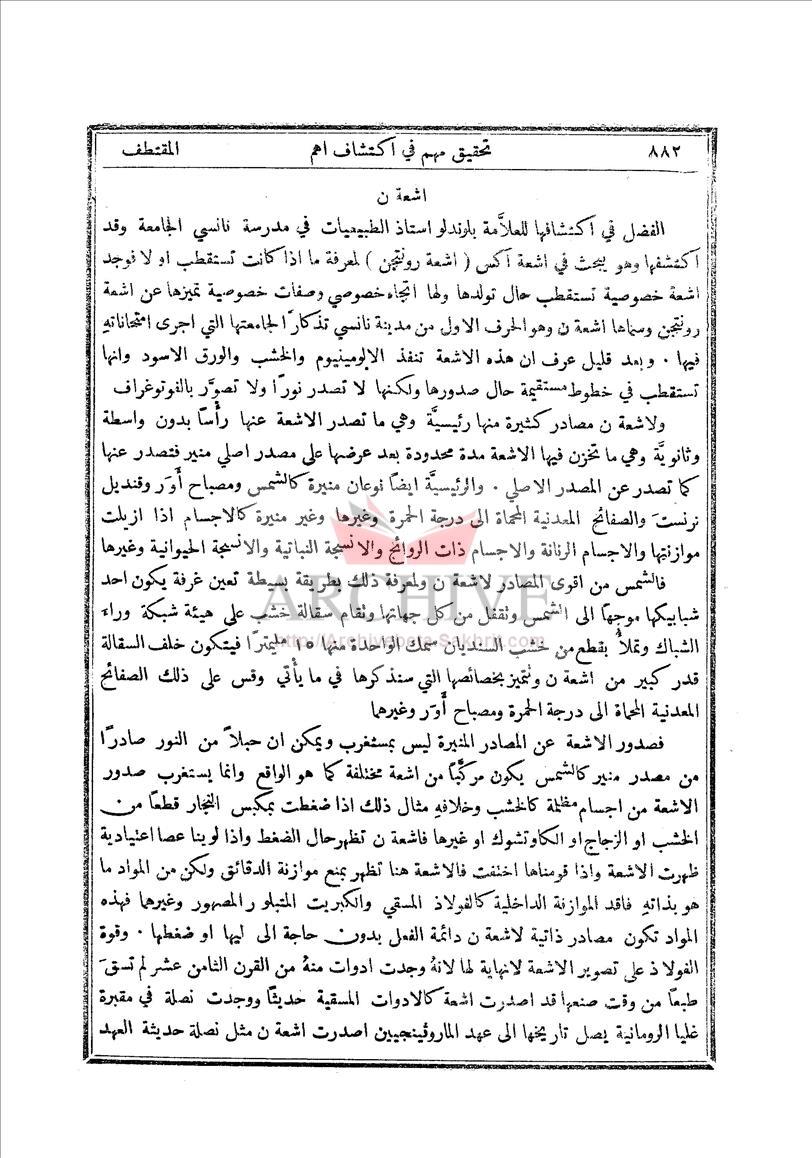 ٨٨٢ تحقيق مهم في اكتشاف اهم المقتطف
اشعة ن
الفضل في اكتشافها للعلاَّمة بلوندلو استاذ الطبيعيات في مدرسة نانسي الجامعة وقد
اكتشفها وهو يبحث في اشعة اكس ( اشعة رونتجن ) لمعرفة ما اذا كانت تستقطب او لا فوجد
اشعة خصوصية تستقطب حال تولدها ولها اتجاه خصوصي وصفات خصوصية تميزها عن اشعة
رونتجن وسماها اشعة ن وهو الحرف الاول من مدينة نانسي تذكارًا لجامعتها التي اجرى امتحاناتهِ
فيها ٠ وبعد قليل عرف ان هذه الاشعة تنفذ الالومينيوم والخشب والورق الاسود وانها
تستقطب في خطوط مستقيمة حال صدورها ولكنها لا تصدر نورًا ولا تصوَّر بالفوتوغراف
ولاشعة ن مصادر كثيرة منها رئيسيَّة وهي ما تصدر الاشعة عنها رأسًا بدون واسطة
وثانويَّة وهي ما تخزن فيها الاشعة مدة محدودة بعد عرضها على مصدر اصلي منير فتصدر عنها
كما تصدر عن المصدر الاصلي ٠ والرئيسيَّة ايضًا نوعان منيرة كالشمس ومصباح أَوَر وقنديل
نرنست والصفائح المعدنية المحماة الى درجة الحمرة وغيرها وغير منيرة كالاجسام اذا ازيلت
موازنتها والاجسام الرنانة والاجسام ذات الروائح والانسجة النباتية والانسجة الحيوانية وغيرها
فالشمس من اقوى المصادر لاشعة ن ولمعرفة ذلك بطريقة بسيطة تعين غرفة يكون احد
شبابيكها موجهًا الى الشمس وتقفل من كل جهاتها وتقام سقالة خشب على هيئة شبكة وراء
الشباك وتملأُ بقطع من خشب السنديان سمك الواحدة منها ١٥ مليمترًا فيتكون خلف السقالة
قدر كبير من اشعة ن وتتميز بخصائصها التي سنذكرها في ما يأتي وقس على ذلك الصفائح
المعدنية المحماة الى درجة الحمرة ومصباح أَوَر وغيرهما
فصدور الاشعة عن المصادر المنيرة ليس بمستغرب ويمكن ان حبلاً من النور صادرًا
من مصدر منير كالشمس يكون مركَّبًا من اشعة مختلفة كما هو الواقع وانما يستغرب صدور
الاشعة من اجسام مظلمة كالخشب وخلافهِ مثال ذلك اذا ضغطت بمكبس النجار قطعًا من
الخشب او الزجاج او الكاوتشوك او غيرها فاشعة ن تظهر حال الضغط واذا لوينا عصا اعتيادية
ظهرت الاشعة واذا قومناها اختفت فالاشعة هنا تظهر بمنع موازنة الدقائق ولكن من المواد ما
هو بذاتهِ فاقد الموازنة الداخلية كالفولاذ المسقي والكبريت المتبلور المصهور وغيرهما فهذه
المواد تكون مصادر ذاتية لاشعة ن دائمة الفعل بدون حاجة الى ليها او ضغطها ٠ وقوة
الفولاذ على تصوير الاشعة لا نهاية لها لانهُ وجدت ادوات منهُ من القرن الثامن عشر لم تسقَ
طبعًا من وقت صنعها قد اصدرت اشعة كالادوات المسقية حديثًا ووجدت نصلة في مقبرة
غليا الرومانية يصل تاريخها الى عهد الماروڤينجيين اصدرت اشعة ن مثل نصلة حديثة العهد
ARCHIVE
http://Archivebeta.Sakhrit.com